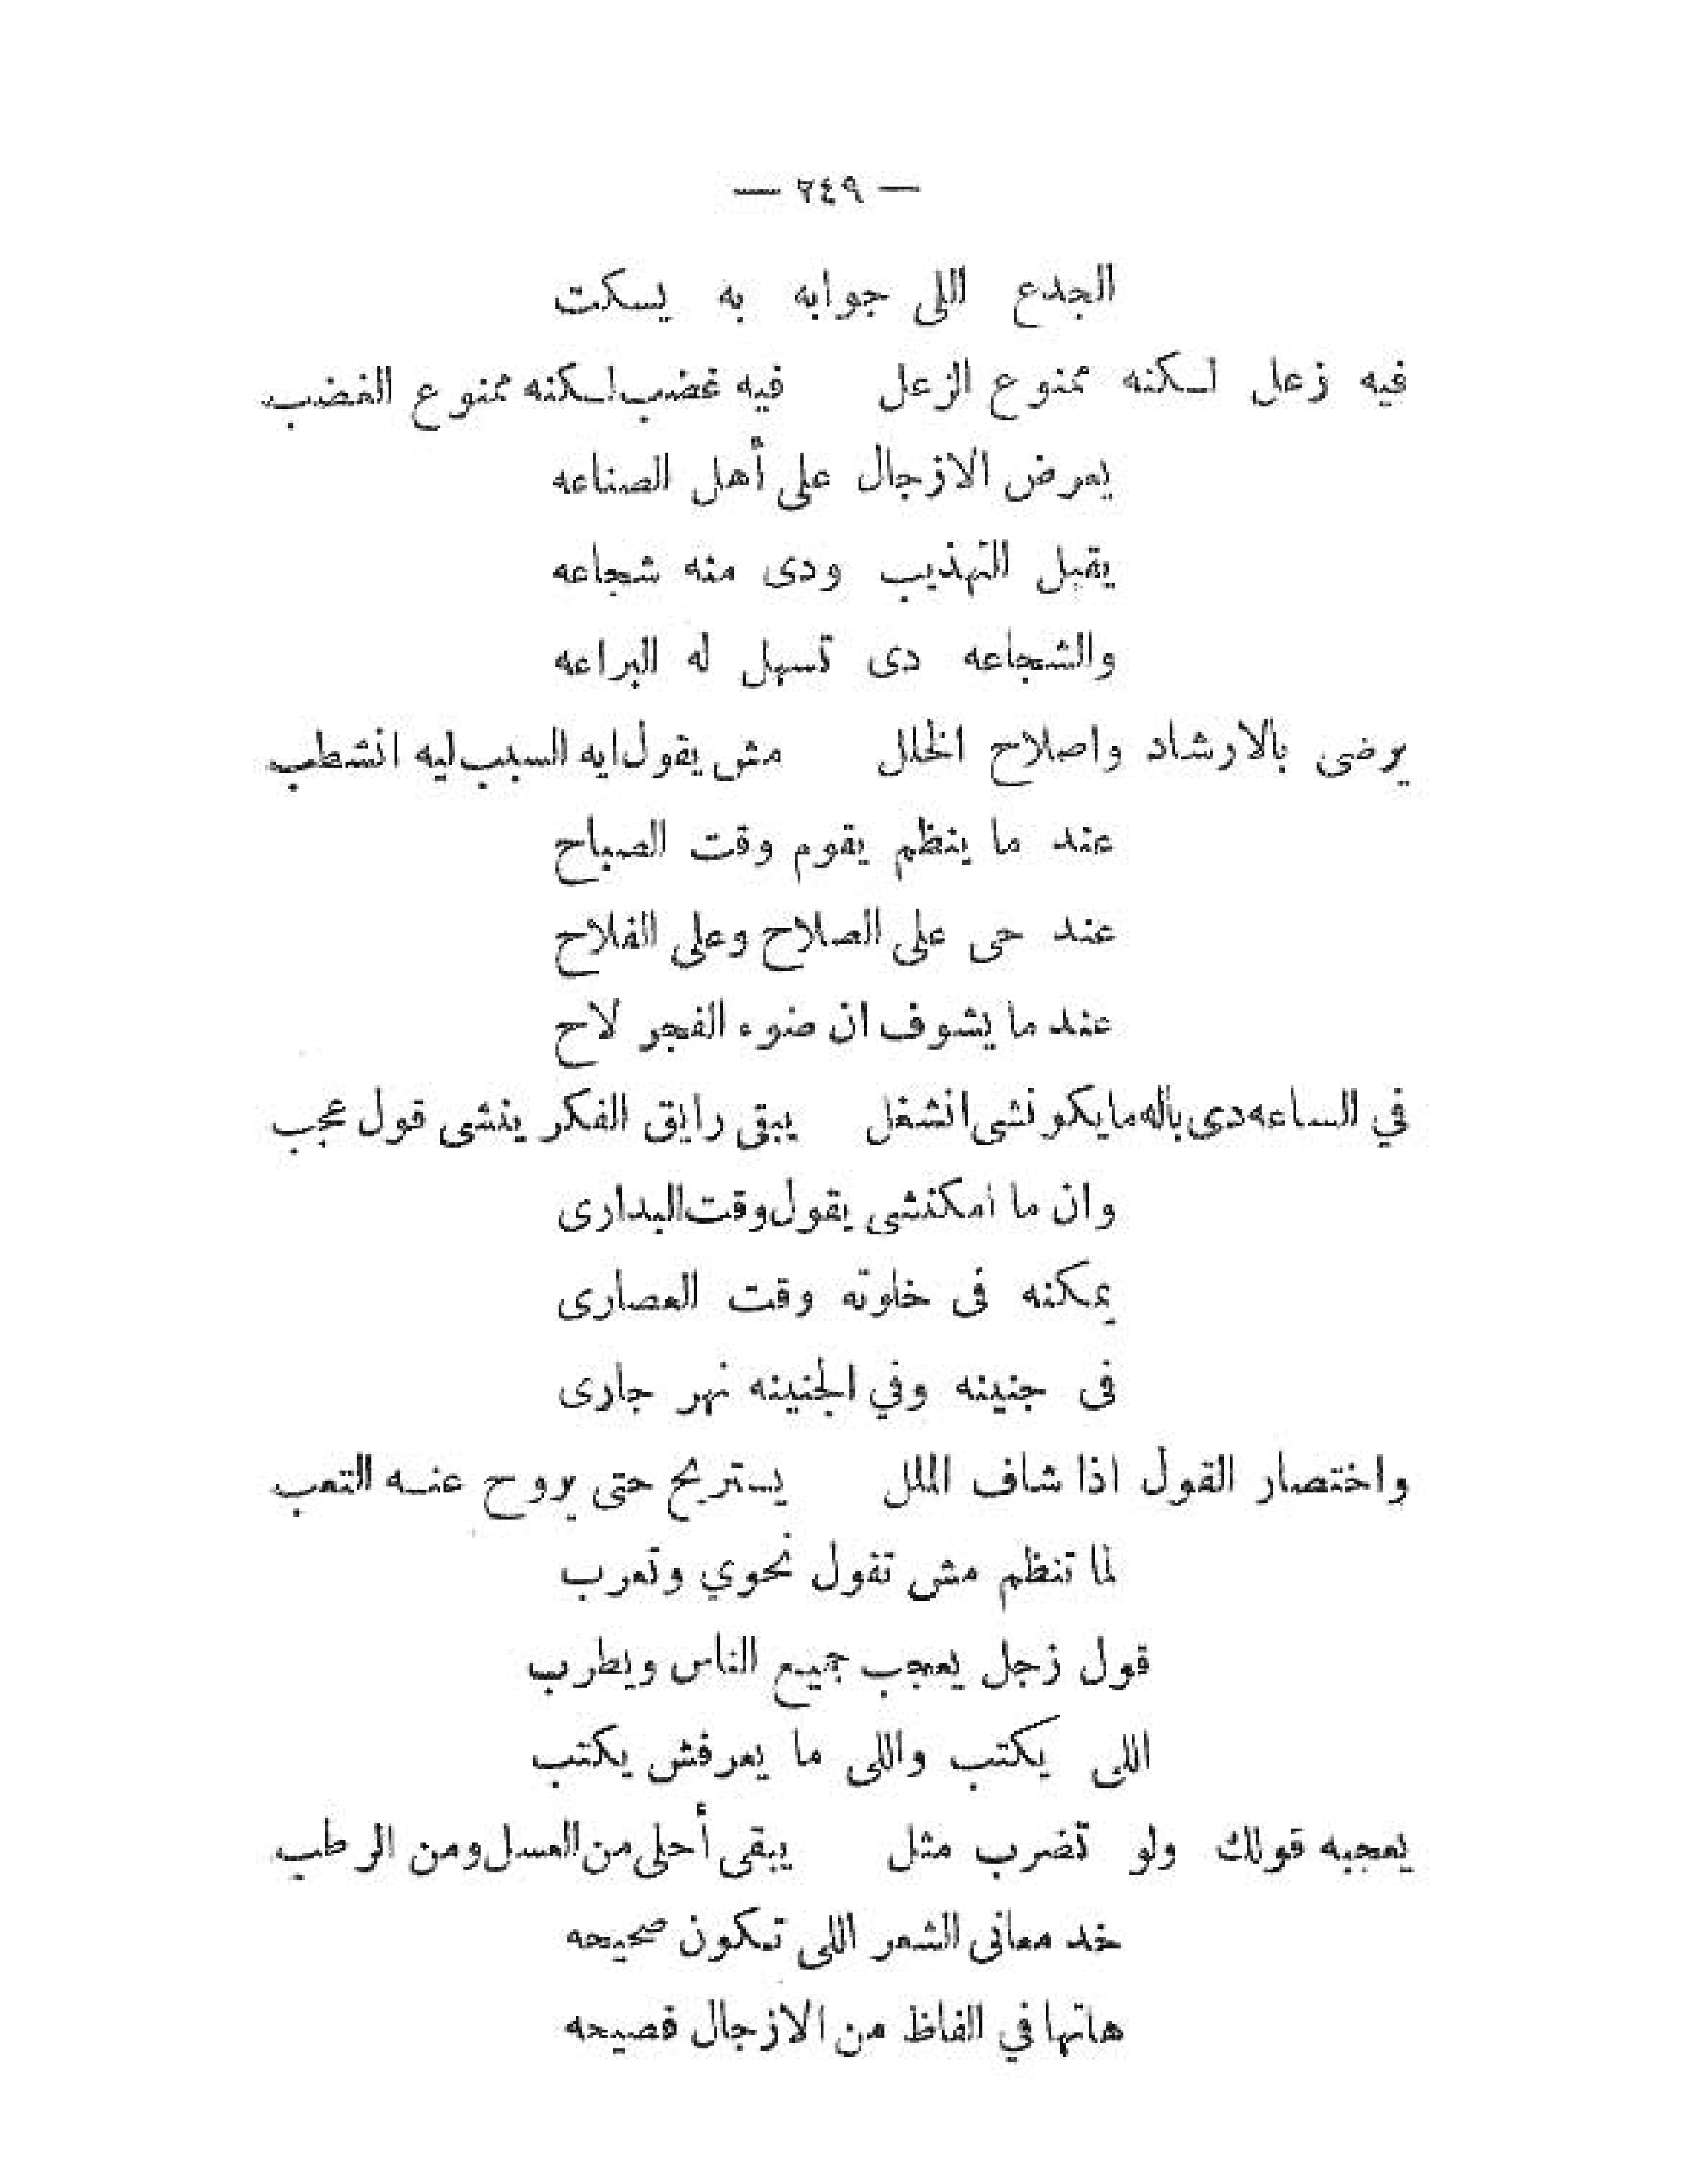 — ٢٤٩ —
الجدع اللى جوابه به يسكت
فيه زعل لكنه ممنوع الزعل فيه غضب لكنه ممنوع الغضب
يعرض الازجال على أهل الصناعه
يقبل التهذيب ودى منه شجاعه
والشجاعه دى تسهل له البراعه
يرضى بالارشاد واصلاح الخلل مش يقول ايه السبب ليه انشطب
عند ما ينظم يقوم وقت الصباح
عند حى على الصلاح وعلى الفلاح
عند ما يشوف ان ضوء الفجر لاح
في الساعه دى باله ما يكونشى انشغل يبقى رايق الفكر ينشى قول عجب
وان ما امكنشى يقول وقت البدارى
يمكنه فى خلوته وقت العصارى
فى جنينه وفي الجنينه نهر جارى
واختصار القول اذا شاف الملل يستريح حتى يروح عنه التعب
لما تنظم مش تقول نحوي وتعرب
قول زجل يعجب جميع الناس ويطرب
اللى يكتب واللى ما يعرفش يكتب
يعجبه قولك ولو تضرب مثل يبقى أحلى من العسل ومن الرطب
خد معانى الشعر اللى تكون صحيحه
هاتها في الفاظ من الازجال فصيحه